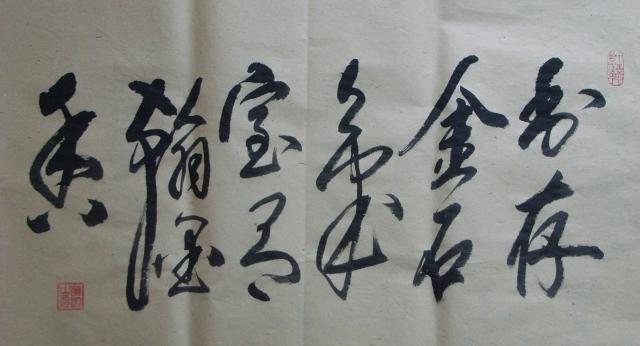 书存
金石
氣
室有
翰墨
香